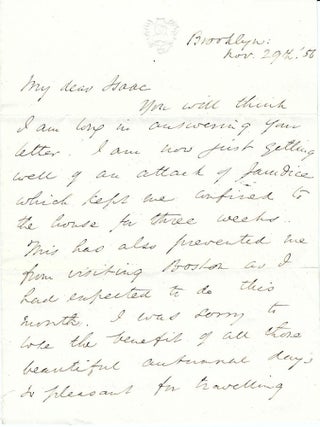 Brooklyn:
Nov. 29th. '56
My dear Isaac
You will think
I am long in answering your
letter. I am now just getting
well of an attack of Jaundice
which kept me confined to
the house for three weeks.
This has also prevented me
from visiting Boston as I
had expected to do this
month. I was sorry to
lose the benefit of all those
beautiful autumnal days
so pleasant for travelling